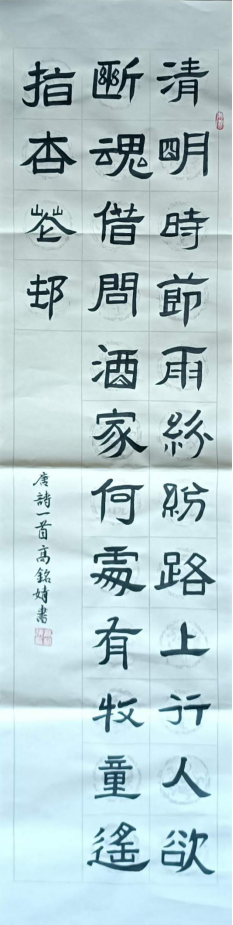 清明時節雨紛紛路上行人欲
斷魂借問酒家何處有牧童遙
指杏花邨
唐詩一首高銘婧書